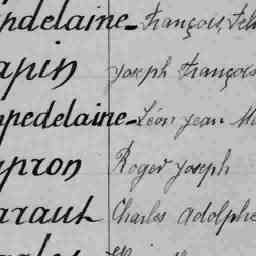 pdelaine - François, Fél
apin Joseph François
apedelaine - Léon Jean Ma
apron Roger Joseph
araut Charles Adolphe